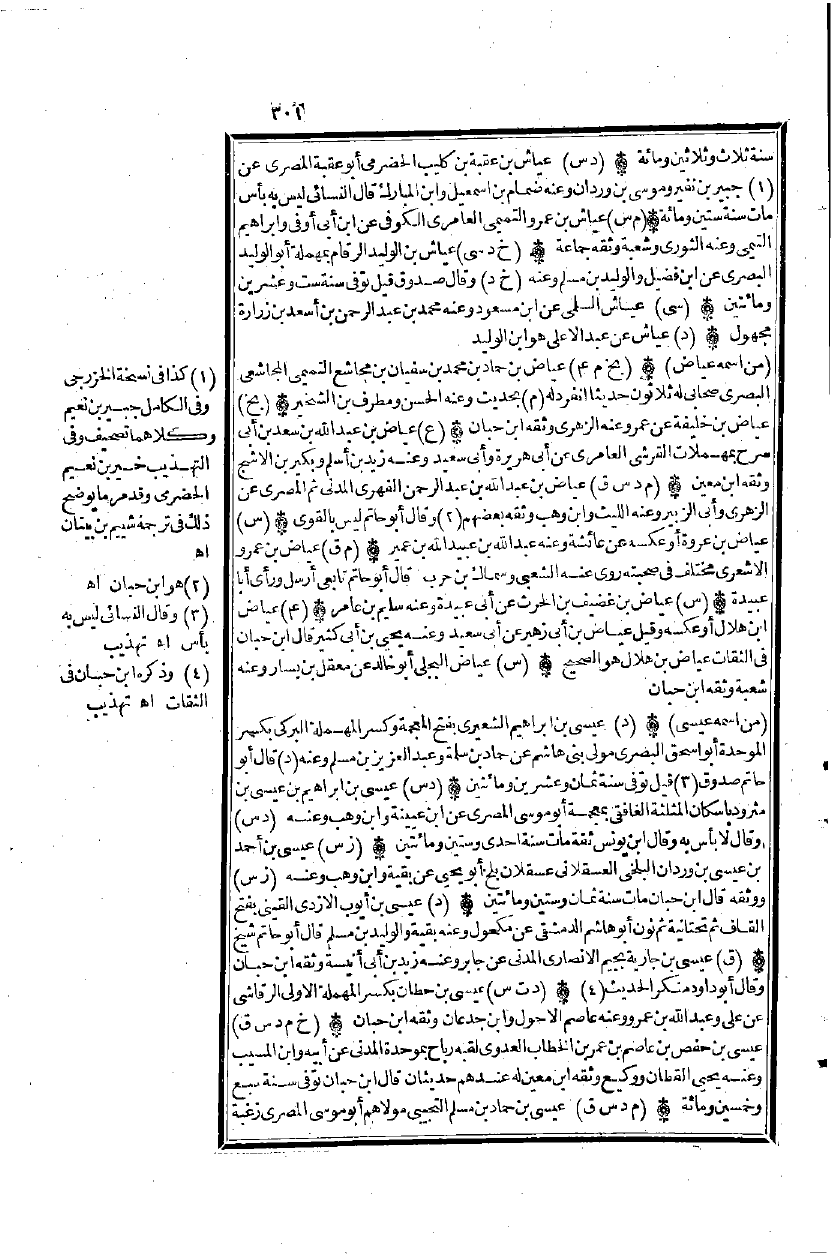 ٣٠٦
سنة ثلاث وثلاثين ومائة ۞ (د س) عياش بن عقبة بن كليب الحضرمى أبو عقبة المصرى عن
(١) جبير بن نفير وموسى بن وردان وعنه ضمام بن اسمعيل وابن المبارك قال النسائى ليس به بأس
مات سنة ستين ومائة ۞ (م س) عياش بن عمرو التميمى العامرى الكوفى عن ابن أبى أوفى وابراهيم
التيمى وعنه الثورى وشعبة وثقه جماعة ۞ (خ د سى) عياش بن الوليد الرقام بمهملة أبو الوليد
البصرى عن ابن فضيل والوليد بن مسلم وعنه (خ د) وقال صدوق قيل توفى سنة ست وعشرين
ومائتين ۞ (سى) عياش السلمى عن ابن مسعود وعنه محمد بن عبد الرحمن بن أسعد بن زرارة
مجهول ۞ (د) عياش عن عبد الاعلى هو ابن الوليد
(من اسمه عياض) ۞ (بخ م ٤) عياض بن حماد بن محمد بن سفيان بن مجاشع التميمى المجاشعى
البصرى صحابى له ثلاثون حديثا انفرد له (م) بحديث وعنه الحسن ومطرف بن الشخير ۞ (بخ)
عياض بن خليفة عن عمر وعنه الزهرى وثقه ابن حبان ۞ (ع) عياض بن عبد الله بن سعد بن أبى
سرح بمهملات القرشى العامرى عن أبى هريرة وأبى سعيد وعنه زيد بن أسلم وبكير بن الاشج
وثقه ابن معين ۞ (م د س ق) عياض بن عبد الله بن عبد الرحمن الفهرى المدنى ثم المصرى عن
الزهرى وأبى الزبير وعنه الليث وابن وهب وثقه بعضهم (٢) وقال أبو حاتم ليس بالقوى ۞ (س)
عياض بن عروة أو عكسه عن عائشة وعنه عبد الله بن عبيد الله بن عمير ۞ (م ق) عياض بن عمرو
الاشعرى مختلف فى صحبته روى عنه الشعبى وسماك بن حرب قال أبو حاتم تابعى أرسل ورأى أبا
عبيدة ۞ (س) عياض بن غضيف بن الحرث عن أبى عبيدة وعنه سليم بن عامر ۞ (٤) عياض
ابن هلال أو عكسه وقيل عياض بن أبى زهير عن أبى سعيد وعنه يحيى بن أبى كثير قال ابن حبان
فى الثقات عياض بن هلال هو الصحيح ۞ (س) عياض البجلى أبو خالد عن معقل بن يسار وعنه
شعبة وثقه ابن حبان
(من اسمه عيسى) ۞ (د) عيسى بن ابراهيم الشعيرى بفتح المعجمة وكسر المهملة البركى بكسر
الموحدة أبو اسحق البصرى مولى بنى هاشم عن حماد بن سلمة وعبد العزيز بن مسلم وعنه (د) قال أبو
حاتم صدوق (٣) قيل توفى سنة ثمان وعشرين ومائتين ۞ (د س) عيسى بن ابراهيم بن عيسى بن
مثرود باسكان المثلثة الغافقى بمعجمة أبو موسى المصرى عن ابن عيينة وابن وهب وعنه (د س)
وقال لا بأس به وقال ابن يونس ثقة مات سنة احدى وستين ومائتين ۞ (ز س) عيسى بن أحمد
بن عيسى بن وردان البلخى العسقلانى عسقلان بلخ أبو يحيى عن بقية وابن وهب وعنه (ز س)
ووثقه قال ابن حبان مات سنة ثمان وستين ومائتين ۞ (د) عيسى بن أيوب الازدى القينى بفتح
القاف ثم تحتانية ثم نون أبو هاشم الدمشقى عن مكحول وعنه بقية والوليد بن مسلم قال أبو حاتم شيخ
۞ (ق) عيسى بن جارية بجيم الانصارى المدنى عن جابر وعنه زيد بن أبى أنيسة وثقه ابن حبان
وقال أبو داود منكر الحديث (٤) ۞ (د ت س) عيسى بن حطان بكسر المهملة الاولى الرقاشى
عن على وعبد الله بن عمرو وعنه عاصم الاحول وابن جدعان وثقه ابن حبان ۞ (خ م د س ق)
عيسى بن حفص بن عاصم بن عمر بن الخطاب العدوى لقبه رباح بموحدة المدنى عن أبيه وابن المسيب
وعنه يحيى القطان ووكيع وثقه ابن معين له عندهم حديثان قال ابن حبان توفى سنة سبع
وخمسين ومائة ۞ (م د س ق) عيسى بن حماد بن مسلم التجيبى مولاهم أبو موسى المصرى زغبة
(١) كذا فى نسخة الخزرجى
وفى الكامل جبير بن نعيم
وكلاهما تصحيف وفى
التهذيب خير بن نعيم
الحضرى وقد مر ما يوضح
ذلك فى ترجمة شييم بن بيتان
اه
(٢) هو ابن حبان اه
(٣) وقال النسائى ليس به
بأس اه تهذيب
(٤) وذكره ابن حبان فى
الثقات اه تهذيب